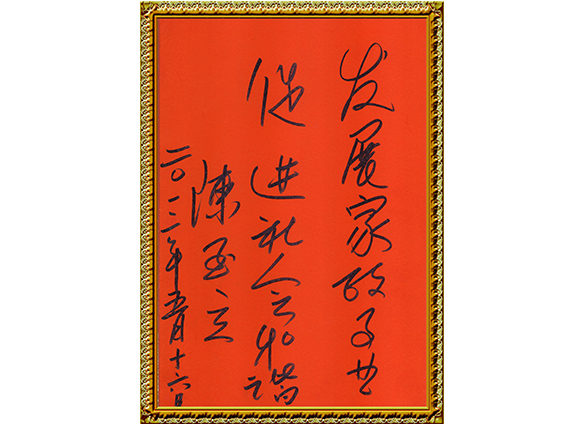 发展家政事业
促进社会和谐
陈至立
二〇一二年五月十六日